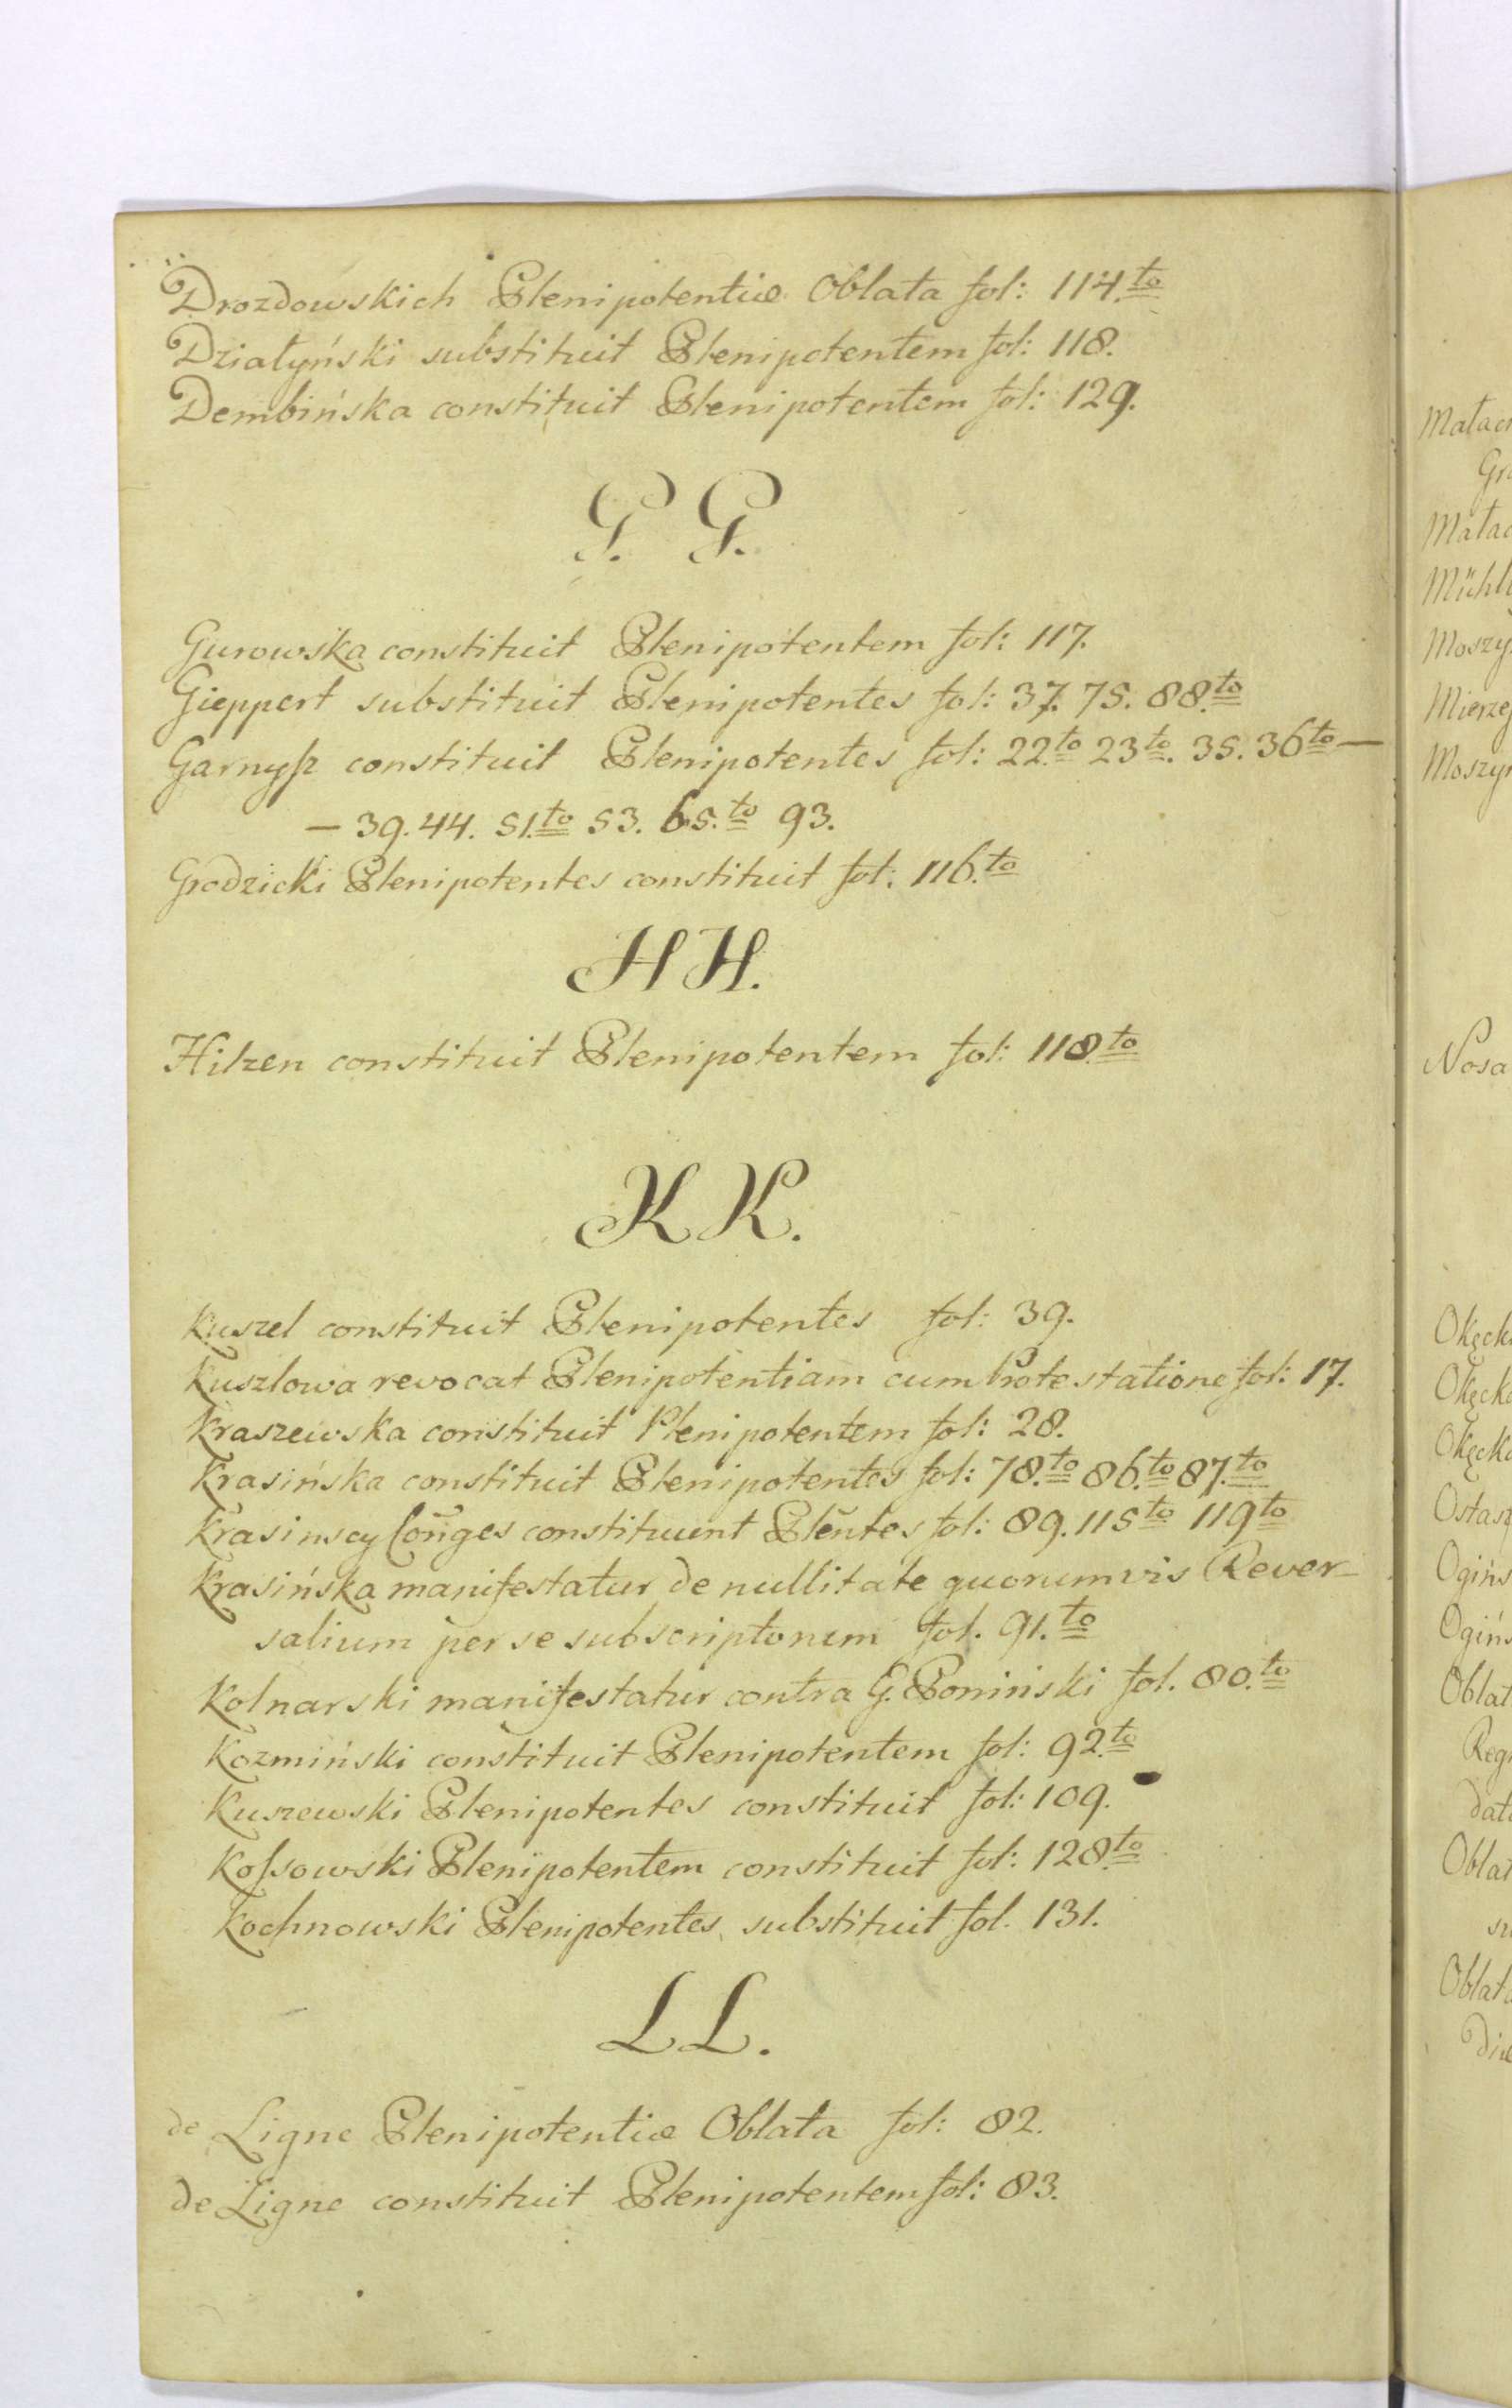 Drozdowskich Plenipotentiæ Oblata fol: 114.to
Działyński substituit Plenipotentem fol: 118.
Dembińska constituit Plenipotentem fol: 129.
G. G.
Gurowska constituit Plenipotentem fol: 117.
Gieppert substituit Plenipotentes fol: 37. 75. 88.to
Garnyſz constituit Plenipotentes fol: 22.to 23.to 35. 36to —
— 39. 44. 51.to 53. 65.to 93.
Grodzicki Plenipotentes constituit fol: 116.to
H H.
Hilzen constituit Plenipotentem fol: 118.to
K K.
Kuszel constituit Plenipotentes fol: 39.
Kuszlowa revocat Plenipotentiam cum Protestatione fol: 17.
Kraszewska constituit Plenipotentem fol: 28.
Krasińska constituit Plenipotentes fol: 78.to 86.to 87.to
Krasinscy Conges constituunt Plentes fol: 89. 115to 119to
Krasińska manifestatur de nullitate quorumvis Rever-
salium per se subscriptorum fol. 91.to
Kolnarski manifestatur contra G. Poniński fol. 80.to
Kozmiński constituit Plenipotentem fol: 92.to
Kuszewski Plenipotentes constituit fol: 109.
Koſsowski Plenipotentem constituit fol: 128.to
Kochnowski Plenipotentes substituit fol. 131.
L L.
de Ligne Plenipotentiæ Oblata fol: 82.
de Ligne constituit Plenipotentem fol: 83.
Małac
Gr
Małac
Mühl
Moszy
Mierze
Moszyn
Nosa
Okęck
Okęck
Okęck
Ostas
Ogińs
Ogińs
Oblat
Reg
dat
Oblat
su
Oblat